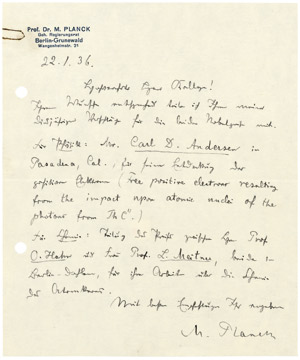 Prof. Dr. M. PLANCK
Geh. Regierungsrat
Berlin-Grunewald
Wangenheimstr. 21
22.1.36.
Hochgeehrter Herr Kollege!
Ihrem Wunsche entsprechend teile ich Ihnen meine
diesjährigen Vorschläge für die beiden Nobelpreise mit.
für Physik: Mr. Carl D. Anderson in
Pasadena, Cal., für seine Entdeckung der
positiven Elektronen (Free positive electrons resulting
from the impact upon atomic nuclei of the
photons from Th C".)
für Chemie: Teilung des Preises zwischen Herrn Prof.
O. Hahn und Frau Prof. L. Meitner, beide in
Berlin-Dahlem, für ihre Arbeiten über die Chemie
des Atomkerns.
Mit besten Empfehlungen Ihr ergebener
M. Planck